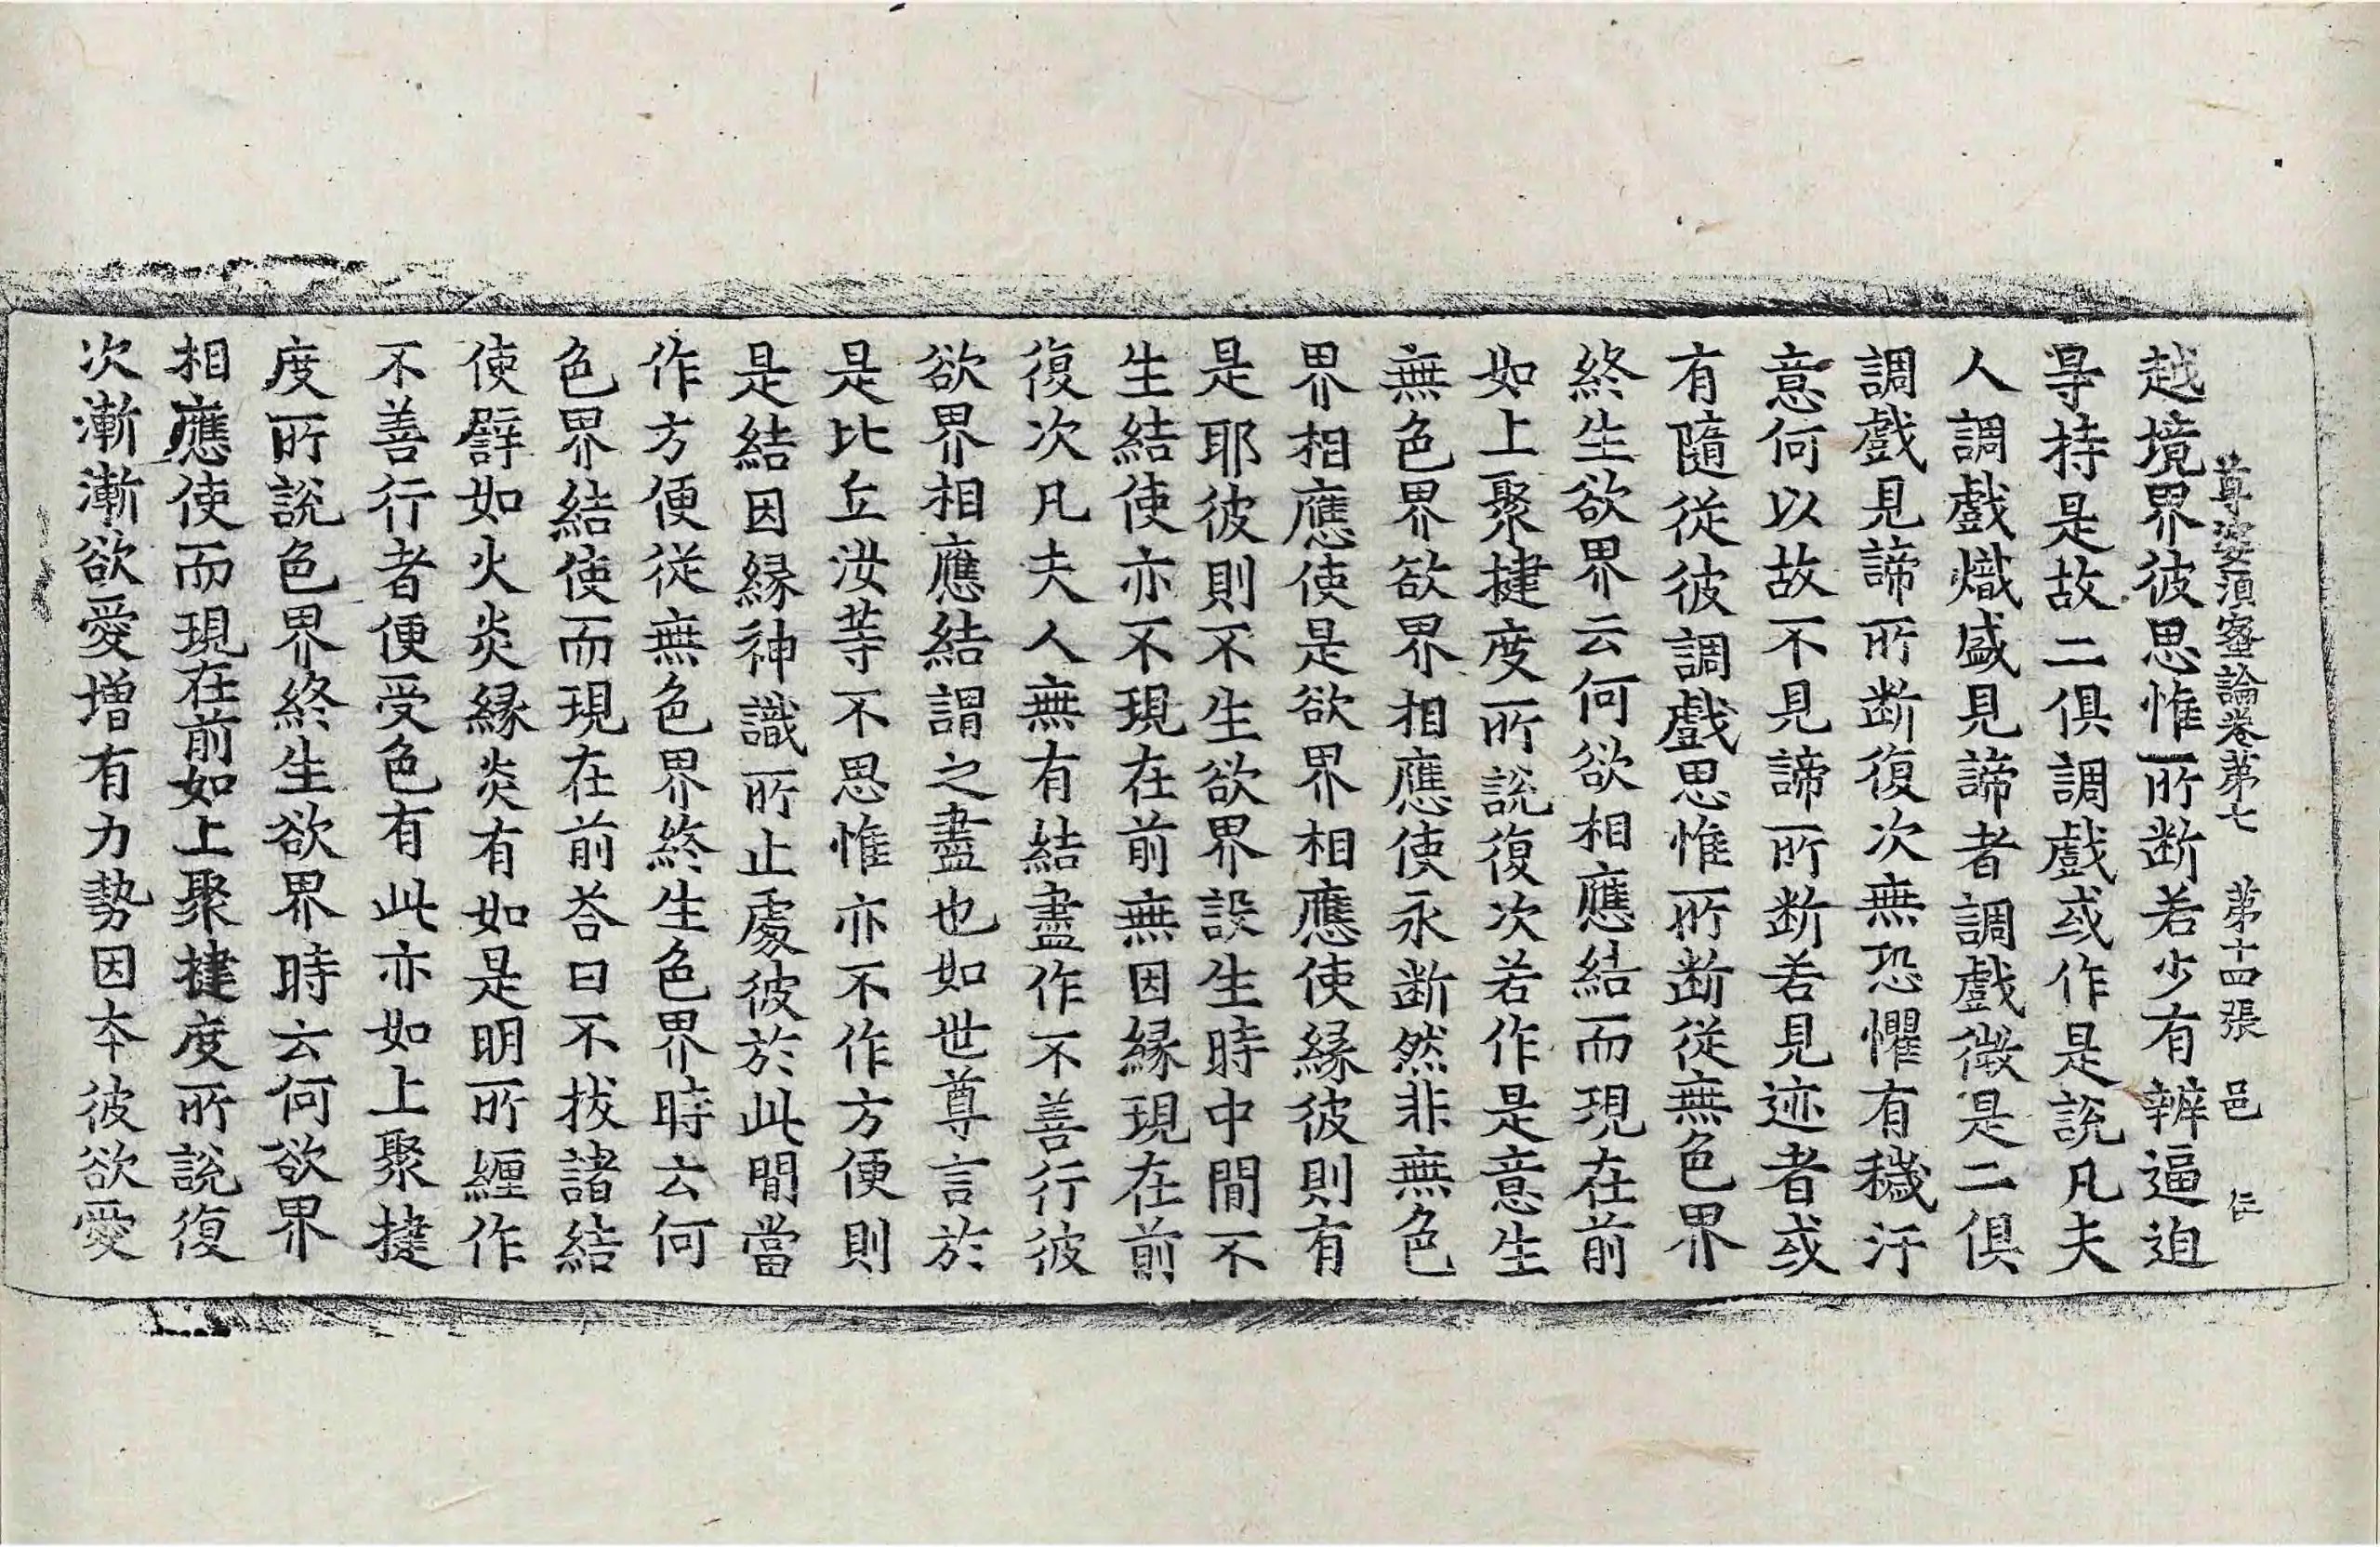 尊婆須蜜論卷第七　第十四張　邑　仁
越境界彼思惟所断若少有辦逼迫
㝵持是故二俱調戲或作是說凡夫
人調戲熾盛見諦者調戲微是二俱
調戲見諦所断復次無恐懼有穢汙
意何以故不見諦所断若見迹者或
有隨從彼調戲思惟所断從無色界
終生欲界云何欲相應結而現在前
如上聚揵度所說復次若作是意生
無色界欲界相應使永断然非無色
界相應使是欲界相應使緣彼則有
是耶彼則不生欲界設生時中閒不
生結使亦不現在前無因緣現在前
復次凡夫人無有結盡作不善行彼
欲界相應結謂之盡也如世尊言於
是比丘汝等不思惟亦不作方便則
是結因緣神識所止處彼於此閒當
作方便從無色界終生色界時云何
色界結使而現在前荅曰不拔諸結
使譬如火炎緣炎有如是明所纏作
不善行者便受色有此亦如上聚揵
度所說色界終生欲界時云何欲界
相應使而現在前如上聚揵度所說復
次漸漸欲愛增有力勢因本彼欲愛